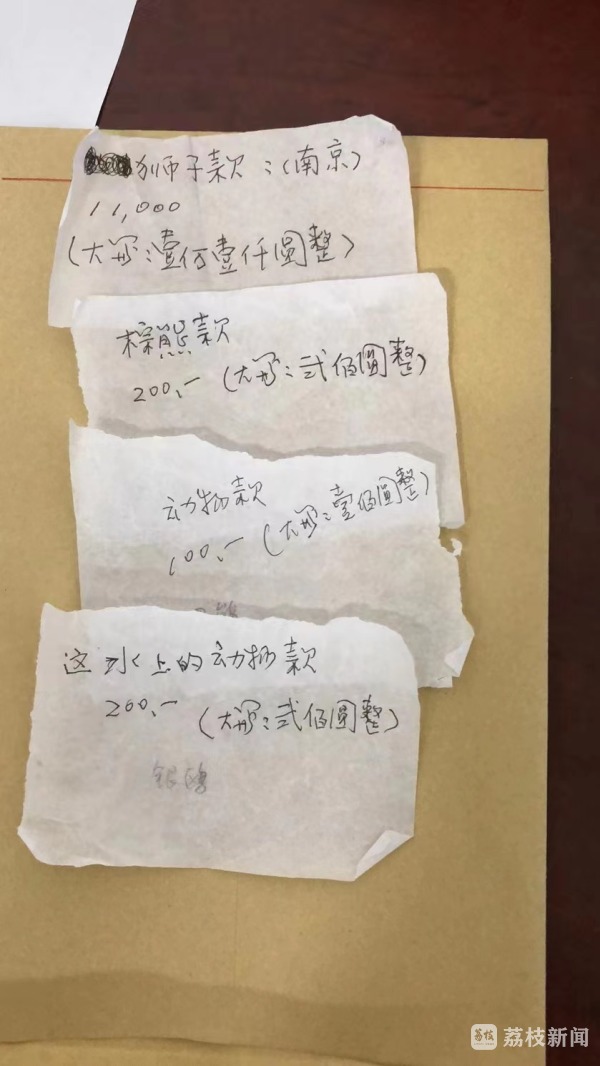 狮子款：（南京）
11,000
（大写：壹仟壹仟圆整）
棕熊款
200.—（大写：弍佰圆整）
动物款
100.—（大写：壹佰圆整）
这水上的动物款
200.—
（大写：弍佰圆整）
银鸥
荔枝 荔枝新闻